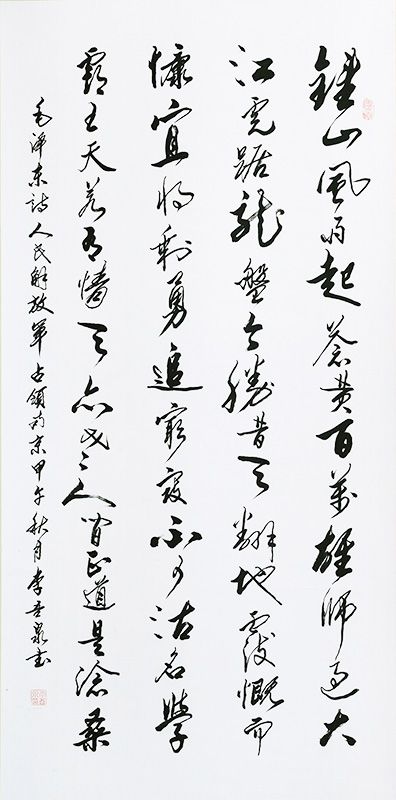 鍾山風雨起蒼黄百萬雄師過大
江虎踞龍盤今勝昔天翻地覆慨而
慷宜将剩勇追窮寇不可沽名學
霸王天若有情天亦老人間正道是滄桑
毛澤東詩人民解放軍占領南京甲午秋月李泉書